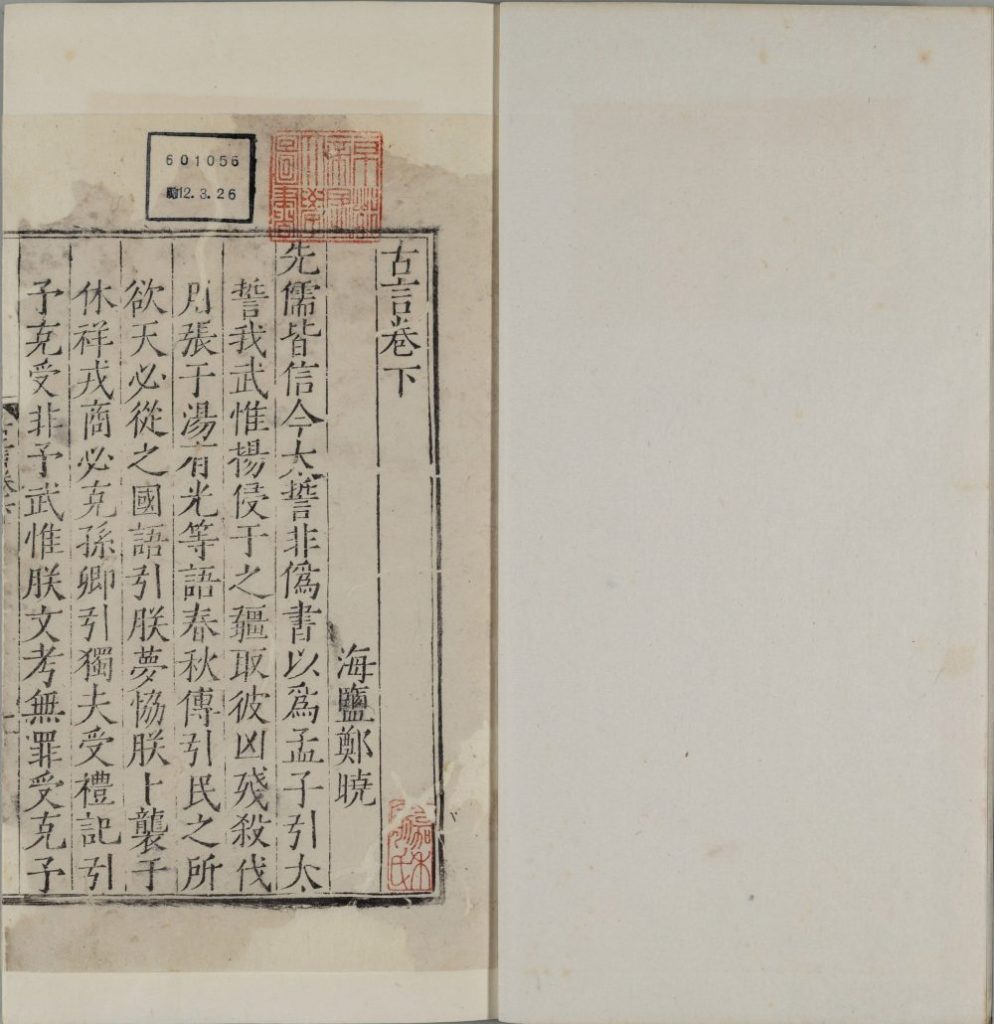 601056
昭12.3.26
京都帝國大學圖書
古言卷下
海鹽鄭曉
先儒皆信今太誓非僞書以爲孟子引太
誓我武惟楊侵于之疆取彼凶殘殺伐
用張于湯有光等語春秋傳引民之所
欲天必從之國語引朕夢恊朕卜襲于
休祥戎商必克孫卿引獨夫受禮記引
予克受非予武惟朕文考無罪受克予